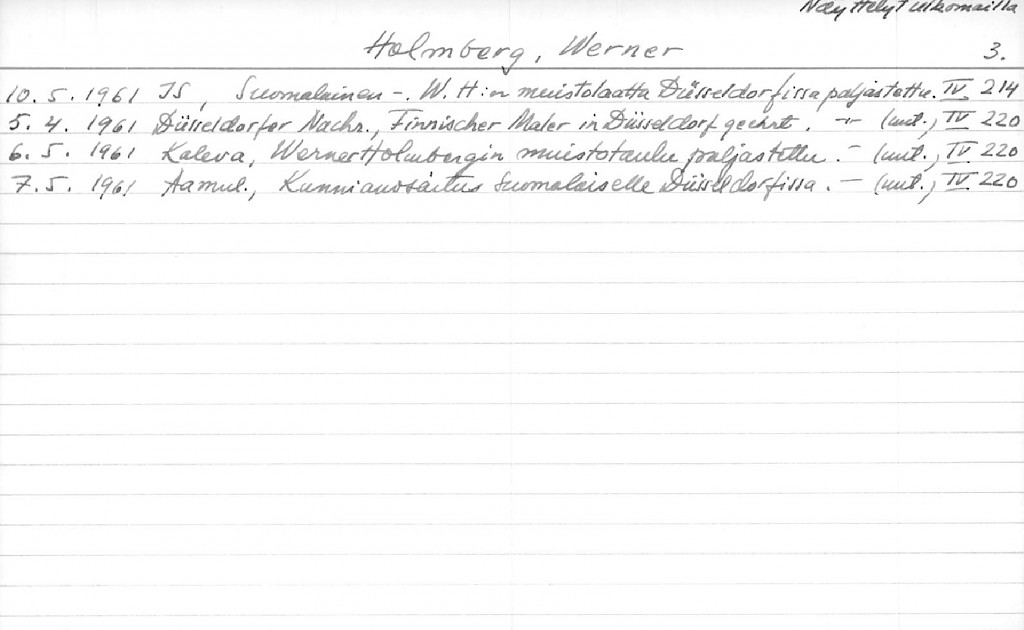 Näyttelyt ulkomailla
Holmberg, Werner 3.
10.5.1961 IS, Suomalainen -. W.H:n muistolaatta Düsseldorfissa paljastettu. IV 214
5.4.1961 Düsseldorfer Nachr., Finnischer Maler in Düsseldorf geehrt. -"- (unt.) IV 220
6.5.1961 Kaleva, Werner Holmbergin muistotaulu paljastettu. - (unt.) IV 220
7.5.1961 Aamul., Kunnianosoitus suomalaiselle Düsseldorfissa. - (unt.) IV 220